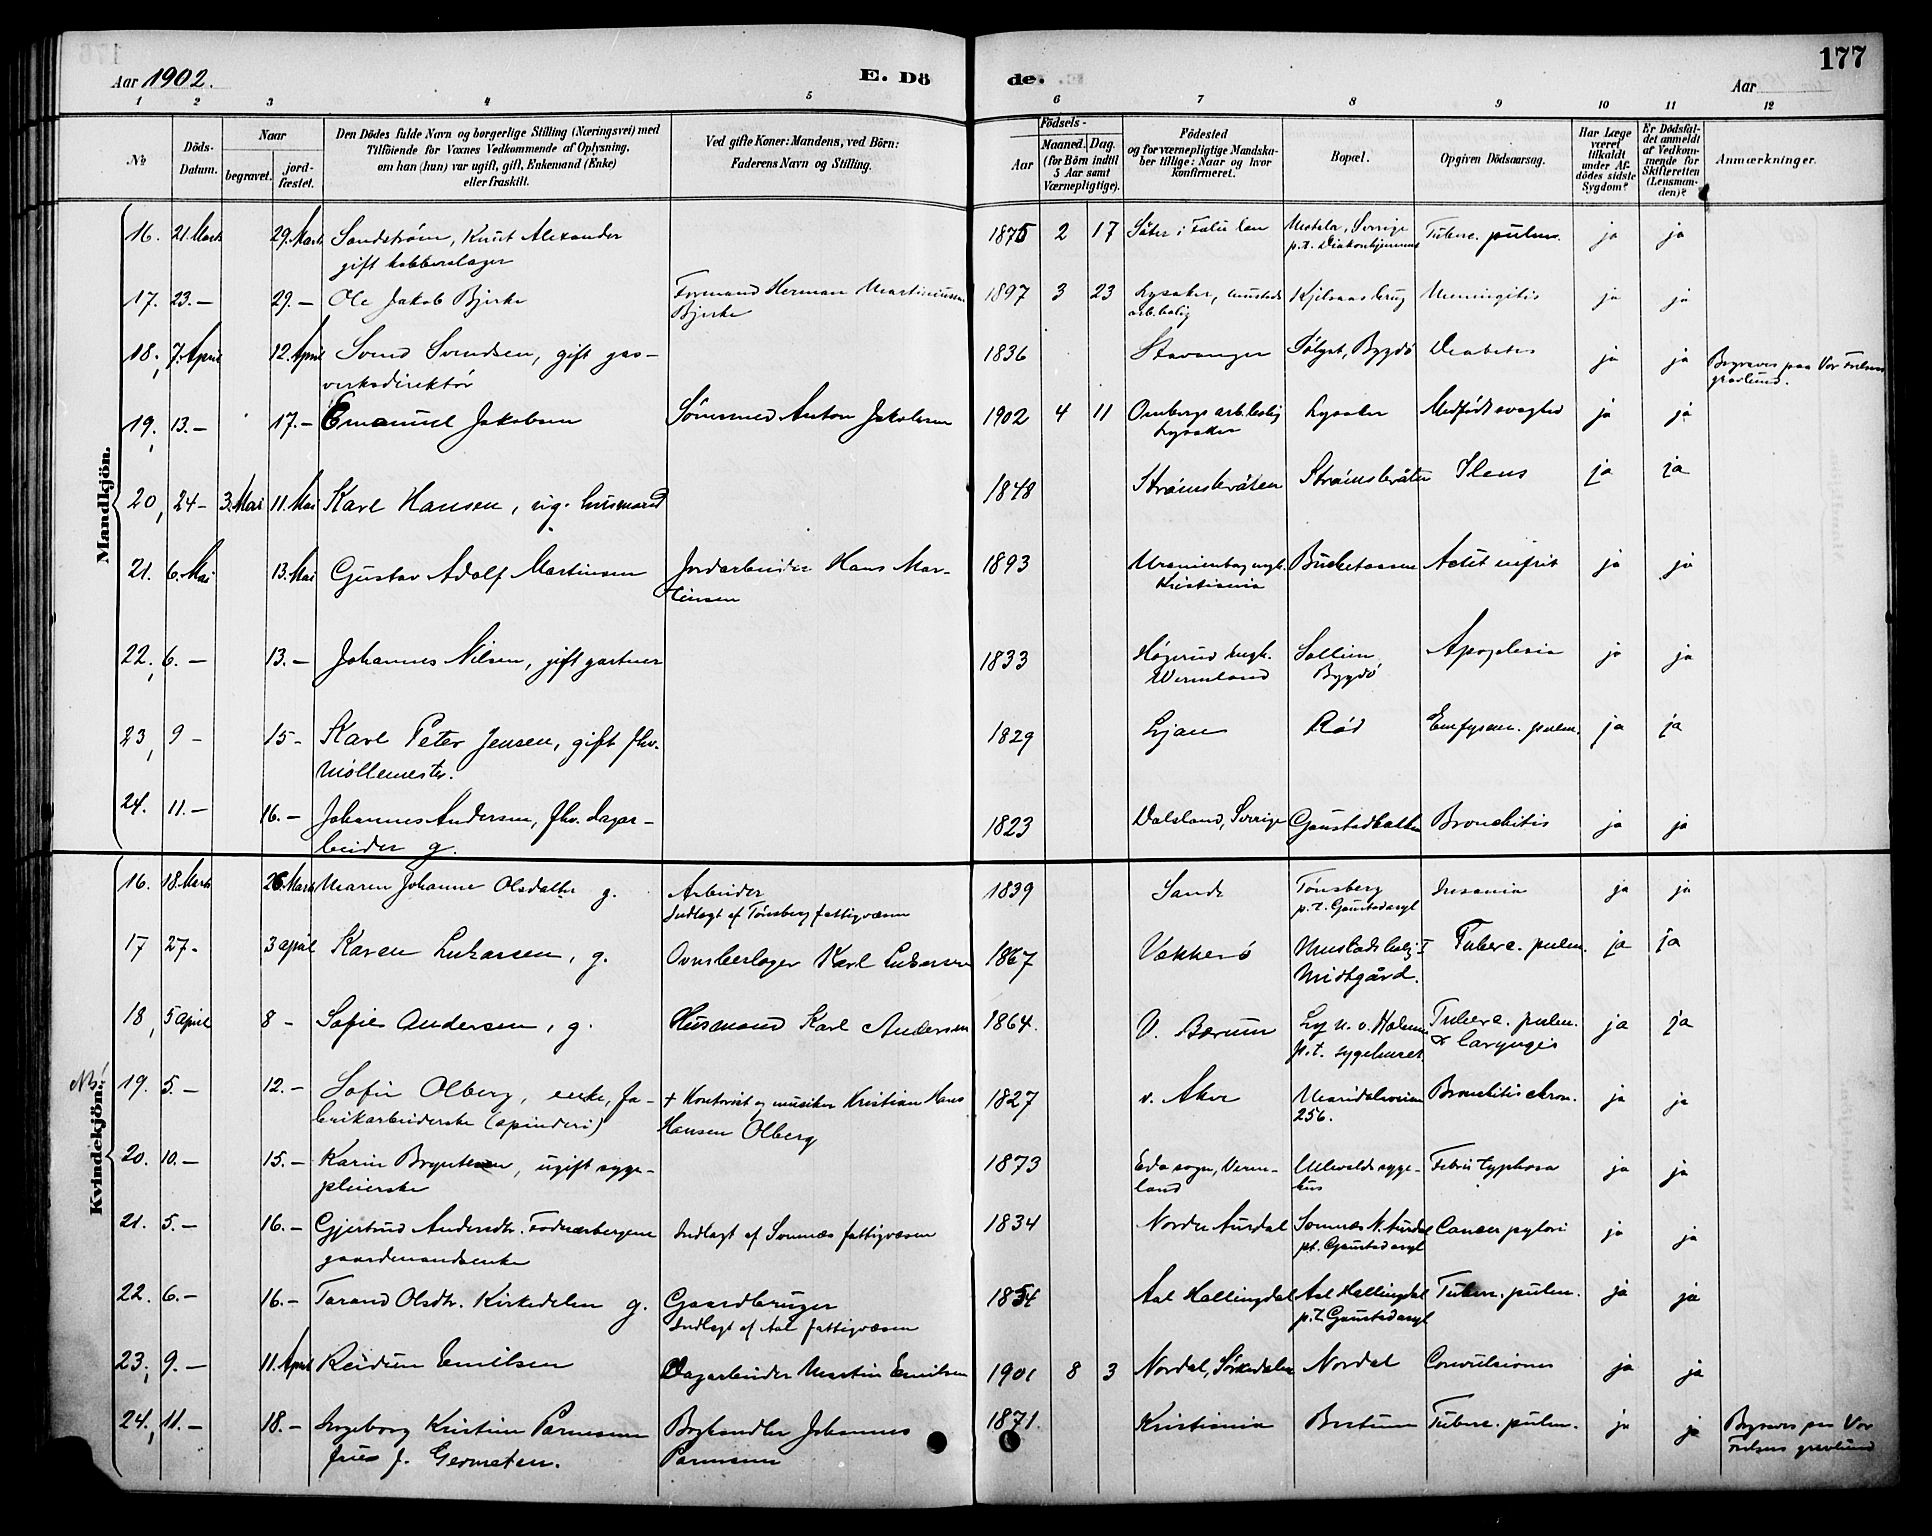 177
Aar 1902.
E. Dö
de.
Aar
1 2 3 4 5 6 7 8 9 10 11 12
No
Döds-
Datum.
Naar
begravet.
jord-
fæstet.
Den Dödes fulde Navn og borgerlige Stilling (Næringsvei) med
Tilföiende for Voxnes Vedkommende af Oplysning,
om han (hun) var ugift, gift, Enkemand (Enke)
eller fraskilt.
Ved gifte Koner: Mandens, ved Börn:
Faderens Navn og Stilling.
Födsels-
Aar
Maaned. Dag.
(for Börn indtil
5 Aar samt
Værnepligtige).
Födested
og for værnepligtige Mandska-
ber tillige: Naar og hvor
konfirmeret.
Bopæl.
Opgiven Dödsaarsag.
Har Læge
været
tilkaldt
under Af-
dödes sidste
Sygdom?
Er Dödsfal-
det anmeldt
af Vedkom-
mende for
Skifteretten
(Lensman-
den)?
Anmærkninger.
Mandkjön.
16. 21. Marts 29. Marts Sandström, Knut Alexander 1875 2 17 Säter i Falu län Motala, Sverige Tuberc. pulm. ja ja
gift kobberslager p.t. Diakonhjemmet
17. 23.- 29.- Ole Jakob Bjerke Formand Herman Martiniussen 1897 3 23 Lysaker, Mustads Kjelsaas brug Meningitis ja ja
Bjerke arb.bolig
18. 7. April 12. April Svend Svendsen, gift gas- 1836 Stavanger Sölyst, Bygdö Diabetes ja ja Begraves paa Vor Frelsers
verksdirektör gravlund.
19. 13.- 17.- Emanuel Jakobsen Anton Jakobsen 1902 4 11 arb.bolig Lysaker Medfödt svaghed ja ja
Lysaker
20. 24- 3. Mai 11. Mai Karl Hansen, ug. husmand 1848 Strömsbråten Strömsbråten Ileus ja ja
21. 6. Mai 13. Mai Gustav Adolf Martinsen Jordarbeider Hans Mar- 1893 Uranienborg mgh. ja ja
tinsen Kristiania
22. 6.- 13.- Johannes Nilsen, gift gartner 1833 Högerud sogn. Sollien Apoplexia ja ja
Wermland Bygdö
23. 9- 15- Karl Peter Jensen, gift fhv. 1829 Ljan Röd Emfysem. pulm. ja ja
Möllemester.
24. 11.- 16.- Johannes Andersen, fhv. dagar- 1823 Dalsland, Sverige Gaustadbakken Bronchitis ja ja
beider g.
Kvindekjön.
16. 18. Marts 26. Marts Maren Johanne Olsdatter g. Arbeider 1839 Sande Tönsberg Insania ja ja
Indlagt af Tönsberg fattigvæsen p.t. Gaustad asyl
17 27- 3 april Karen Lukassen, g. Ovnsbeslager Karl Lukassen 1867 Vækkerö Mustads bolig I Tuberc. pulm. ja ja
Midtgård.
18, 5 april 8- Sofie Andersen, g. Husmand Karl Andersen 1864. V. Bærum Tuberc. pulm. ja ja
p.t. sygehuset & laryngis
NB! 19. 5.- 12.- Sofie Olberg, enke, fa- + Kontorist og musiker Kristian Hans 1827 v. Aker Maridalsveien Bronchitis chron. ja ja
brikarbeiderske (spinderi) Hansen Olberg 256.
20. 10.- 15.- Karin Bryntesen, ugift syge- 1873 Eda sogn, Verm- Ullevolds syge- Febris typhosa ja ja
pleierske land hus
21. 5.- 16.- Gjertrud Andersdtr. Fodnæsbergene Indlagt af Somnæs fattigvæsen 1834 Nordre Aurdal Somnæs N. Aurdal Cancer pylori ja ja
gaardmandsenke pt. Gaustad asyl
22. 6.- 16.- Tarand Olsdtr. Kirkedelen g. Gaardbruger 1854 Aal Hallingdal Aal Hallingdal Tuberc. pulm. ja ja
Indlagt af Aal fattigvæsen p.t. Gaustad asyl
23, 9.- 11. April Reidun Emilsen Dagarbeider Martin Emilsen 1901 8 3 Nordal, Sörkedalen Nordal Convulsiones ja ja
24, 11.- 18.- Ingeborg Kristine Parmann Boghandler Johannes 1871. Kristiania Bestum Tuberc. pulm. ja ja Begraves paa Vor
frue f. Germeten. Parmann Frelsers gravlund